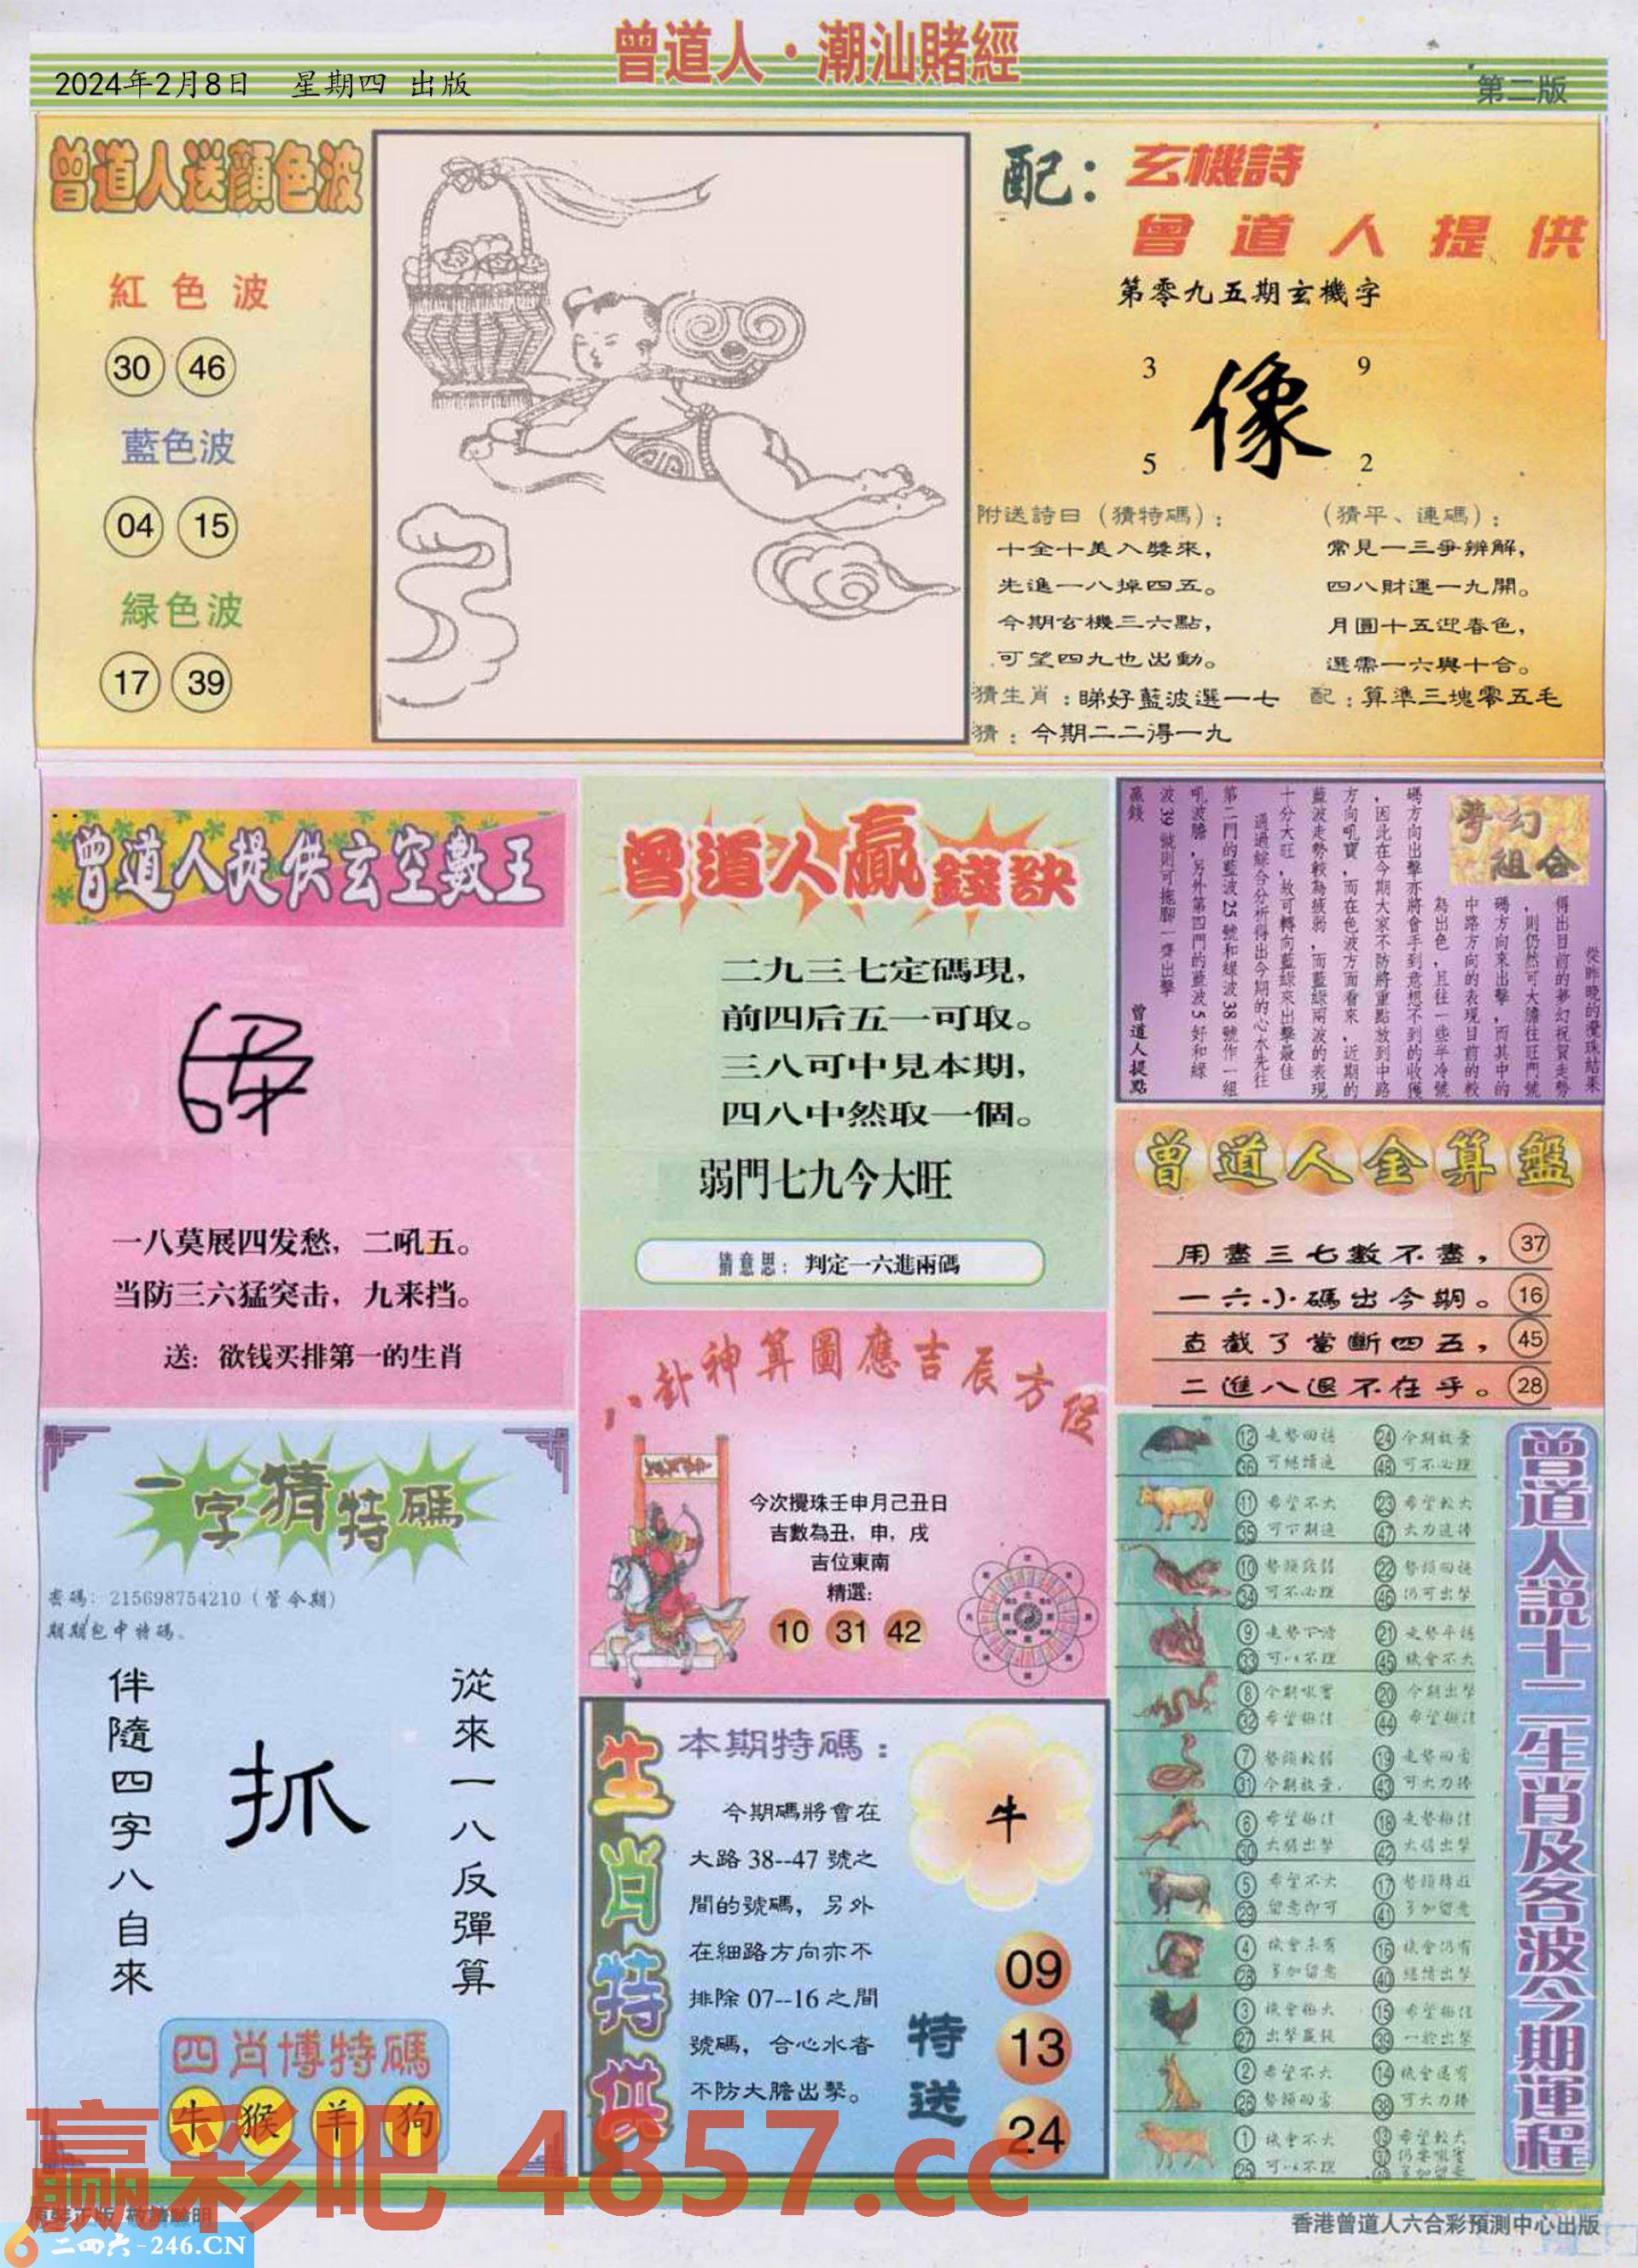 曾道人·潮汕賭經
2024年2月8日 星期四 出版
第二版
曾道人送顔色波
紅色波
30 46
藍色波
04 15
緑色波
17 39
配：玄機詩
曾道人提供
第零九五期玄機字
3 9
像
5 2
附送詩曰（猜特碼）：
十全十美入獎來，
先進一八掉四五。
今期玄機三六點，
可望四九也出動。
（猜平、連碼）：
常見一三爭辨解，
四八財運一九開。
月圓十五迎春色，
選需一六與十合。
猜生肖：睇好藍波選一七
配：算準三塊零五毛
猜：今期二二得一九
曾道人提供玄空數王
一八莫展四发愁，二吼五。
当防三六猛突击，九来挡。
送：欲钱买排第一的生肖
曾道人贏錢訣
二九三七定碼現，
前四后五一可取。
三八可中見本期，
四八中然取一個。
弱門七九今大旺
猜意思：判定一六進兩碼
夢幻組合
從昨晚的攪珠結果
得出目前的夢幻祝賀走勢
，則仍然可大膽往旺門號
碼方向來出擊，而其中的
中路方向的表現目前的較
為出色，且往一些半冷號
碼方向出擊亦將會手到意想不到的收獲
，因此在今期大家不防將重點放到中路
方向吼寶，而在色波方面看來，近期的
藍波走勢較為疲弱，而藍綠兩波的表現
十分大旺，故可轉向藍綠來出擊最佳
通過綜合分析得出今期的心水先往
第二門的藍波25號和綠波38號作一組
吼波膽，另外第四門的藍波5好和綠
波39號則可拖腳一齊出擊
贏錢
曾道人提點
曾道人金算盤
用盡三七數不盡，37
一六小碼出今期。16
直截了當斷四五，45
二進八退不在乎。28
八卦神算圖應吉辰方位
今次攪珠壬申月己丑日
吉數為丑，申，戌
吉位東南
精選：
10 31 42
一字猜特碼
密碼：215698754210（管今期）
期期包中特碼。
從來一八反彈算
抓
伴隨四字八自來
四肖博特碼
牛 猴 羊 狗
生肖特供
本期特碼：
今期碼將會在
大路38--47號之
間的號碼，另外
在細路方向亦不
排除07--16之間
號碼，合心水者
不防大膽出擊。
牛
特送
09
13
24
曾道人説十二生肖及各波今期運程
12 走勢回穩 24 今期放棄
36 可繼續進 48 可不必理
11 希望不大 23 希望較大
35 可下期進 47 大力進捧
10 勢頭疲弱 22 勢頭回穩
34 可不必理 46 仍可出擊
9 走勢下滑 21 走勢平穩
33 可以不理 45 機會不大
8 今期吼實 20 今期出擊
32 希望極佳 44 希望極佳
7 勢頭較弱 19 走勢回勇
31 今期放棄. 43 可大力捧
6 希望極佳 18 走勢極佳
30 大膽出擊 42 大膽出擊
5 希望不大 17 勢頭轉旺
29 留意即可 41 多加留意
4 機會未有 16 機會仍有
28 多加留意 40 繼續出擊
3 機會極大 15 希望極佳
27 出擊贏錢 39 一於出擊
2 希望不大 14 機會還有
26 勢頭回勇 38 可大力捧
1 機會不大 13 希望較大
25 可以不理
赢彩吧 4857.cc
原裝正版 敬請驗明
二四六-246.CN
香港曾道人六合彩預測中心出版